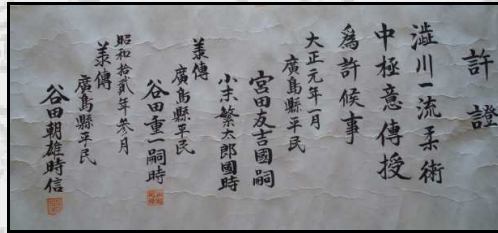 許證
澁川一流柔術
中極意傳授
爲許候事
大正元年一月
廣島縣平民
宮田友吉國嗣
小末繁太郎國時
義傳
廣島縣平民
谷田重一嗣時
昭和拾貳年参月
義傳
廣島縣平民
谷田朝雄時信